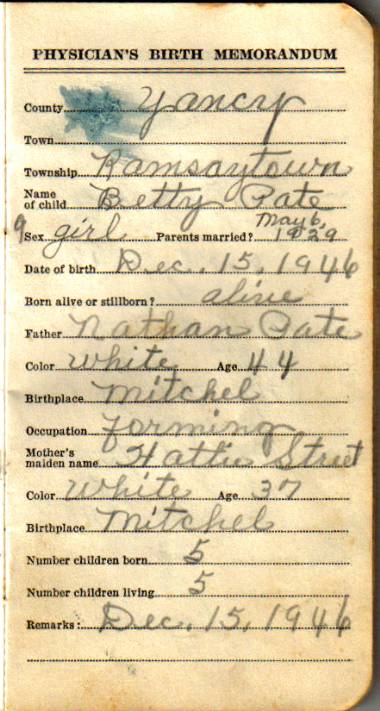 PHYSICIAN'S BIRTH MEMORANDUM
County Yancy
Town
Township Ramsaytown
Name of child Betty Pate
9 Sex girl Parents married? May 6, 1929
Date of birth Dec. 15, 1946
Born alive or stillborn? alive
Father Nathan Pate
Color white Age 44
Birthplace Mitchel
Occupation forming
Mother's maiden name Hattie Street
Color White Age 37
Birthplace Mitchel
Number children born 5
Number children living 5
Remarks: Dec. 15, 1946